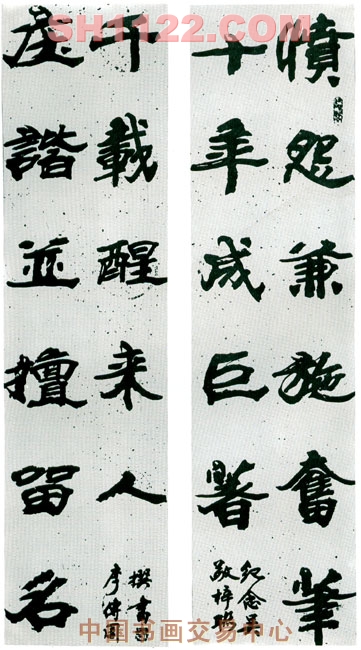 SH1122.COM
憤怨兼施奮筆
十年成巨著
紀念吴
敬梓聯
庄諧並擅留名
千載醒来人
撰書
中国书画交易中心